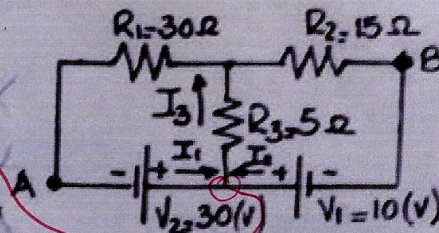 R₁=30Ω R₂=15Ω
B
I₃ R₃=5Ω
A - + I₁ I₂ + -
V₂=30(v) V₁=10(v)